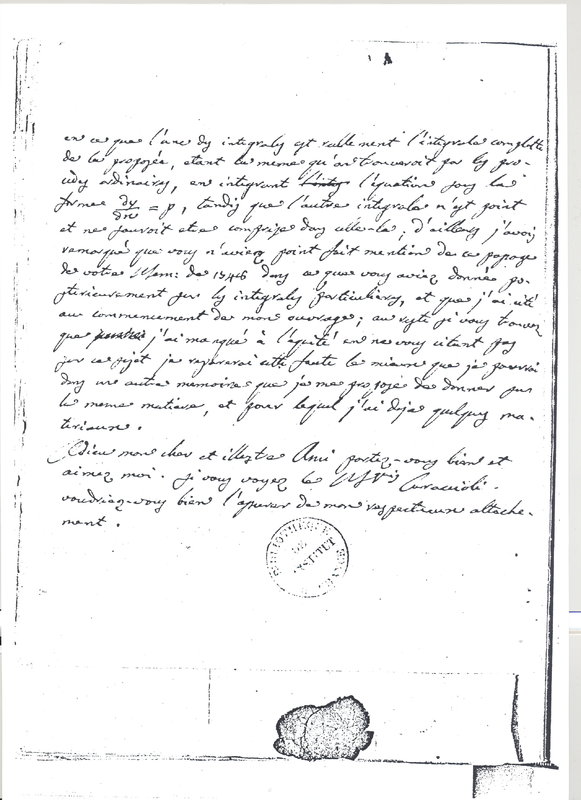 en ce que l'une des integrales est reellement l'integrale complette
de la proposée, etant la meme qu'on trouveroit par les pro-
cedés ordinaires, en integrant l'équation sous la
forme dy/dx = p, tandis que l'autre integrale n'est point
et ne sauroit etre comprise dans celle-la; d'ailleurs j'avois
remarqué que vous n'aviez point fait mention de ce passage
de votre Mem: de 1748 dans ce que vous aviez donné po-
sterieurement sur les integrales particulieres, et que j'ai cité
au commencement de mon ouvrage; au reste si vous trouvez
que j'ai manqué à l'équité en ne vous citant pas
sur ce sujet je reparerai cette faute le mieux que je pourrai
dans une autre memoire que je me propose de donner sur
la meme matiere, et pour lequel j'ai deja quelques ma-
teriaux.
Adieu mon cher et illustre Ami portez-vous bien et
aimez moi. si vous voyez le Mis Caraccioli
voudriez-vous bien l'assurer de mon respectueux attache-
ment.
BIBLIOTHEQUE
DE
INSTITUT